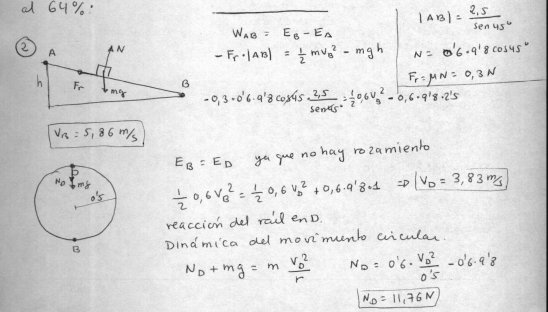 al 64%.
2
A
h
Fr
AN
mg
B
VB = 5,86 m/s
W_AB = E_B - E_A
- Fr · |AB| = 1/2 m v_B² - mgh
- 0,3 · 0'6 · 9'8 cos45 · 2,5/sen45° = 1/2 0,6 V_B² - 0,6 · 9'8 · 2'5
|AB| = 2,5/sen45°
N = 0'6 · 9'8 cos45°
Fr = μN = 0,3 N
D
N_D
mg
0'5
B
E_B = E_D ya que no hay rozamiento
1/2 0,6 V_B² = 1/2 0,6 V_D² + 0,6 · 9'8 · 1 ⇒ V_D = 3,83 m/s
reacción del raíl en D.
Dinámica del movimiento circular.
N_D + mg = m V_D²/r N_D = 0'6 · V_D²/0'5 - 0'6 · 9'8
N_D = 11,76 N